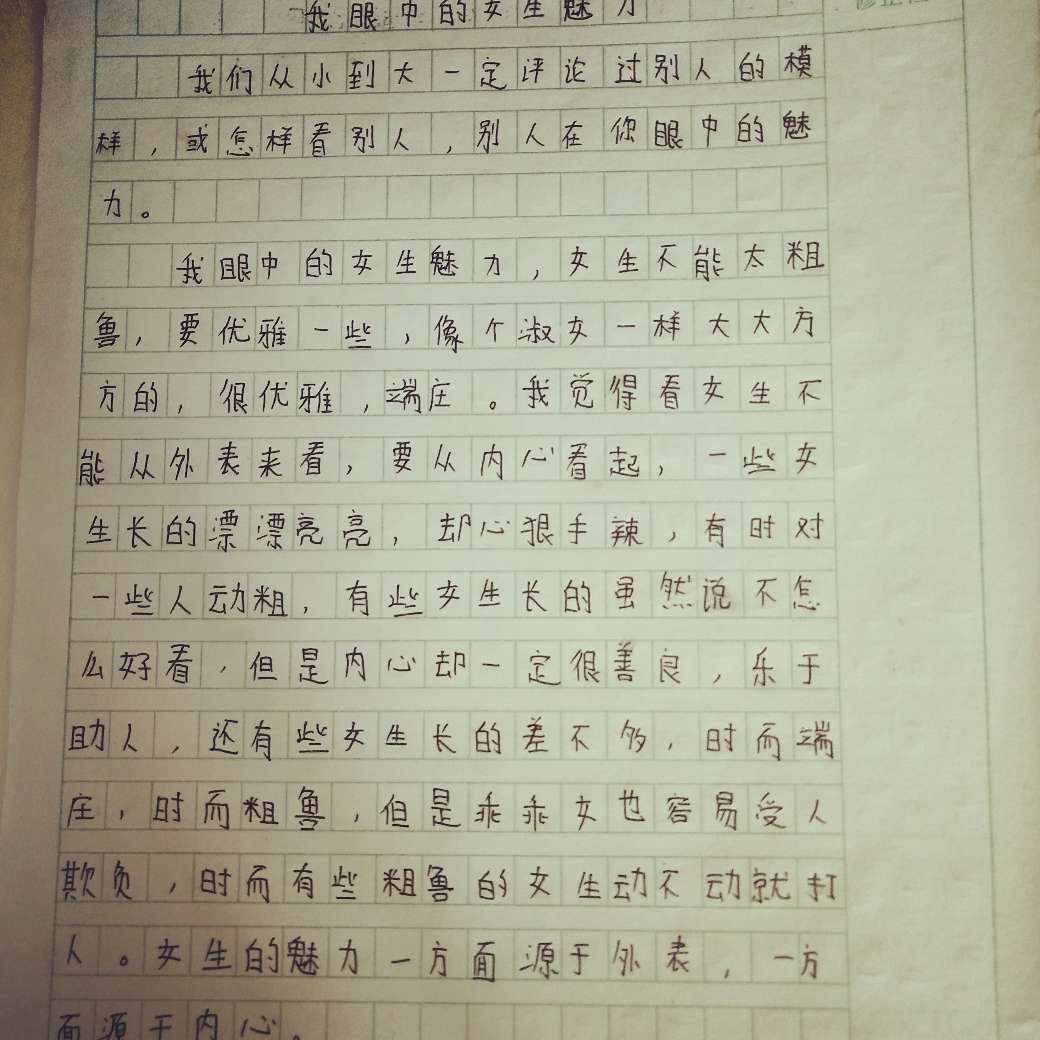 我眼中的女生魅力
我们从小到大一定评论过别人的模
样，或怎样看别人，别人在你眼中的魅
力。
我眼中的女生魅力，女生不能太粗
鲁，要优雅一些，像个淑女一样大大方
方的，很优雅，端庄。我觉得看女生不
能从外表来看，要从内心看起，一些女
生长的漂漂亮亮，却心狠手辣，有时对
一些人动粗，有些女生长的虽然说不怎
么好看，但是内心却一定很善良，乐于
助人，还有些女生长的差不多，时而端
庄，时而粗鲁，但是乖乖女也容易受人
欺负，时而有些粗鲁的女生动不动就打
人。女生的魅力一方面源于外表，一方
面源于内心。